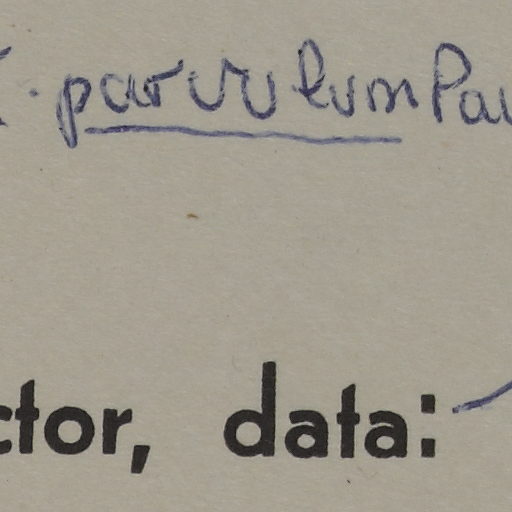 parvulum
ctor, data: